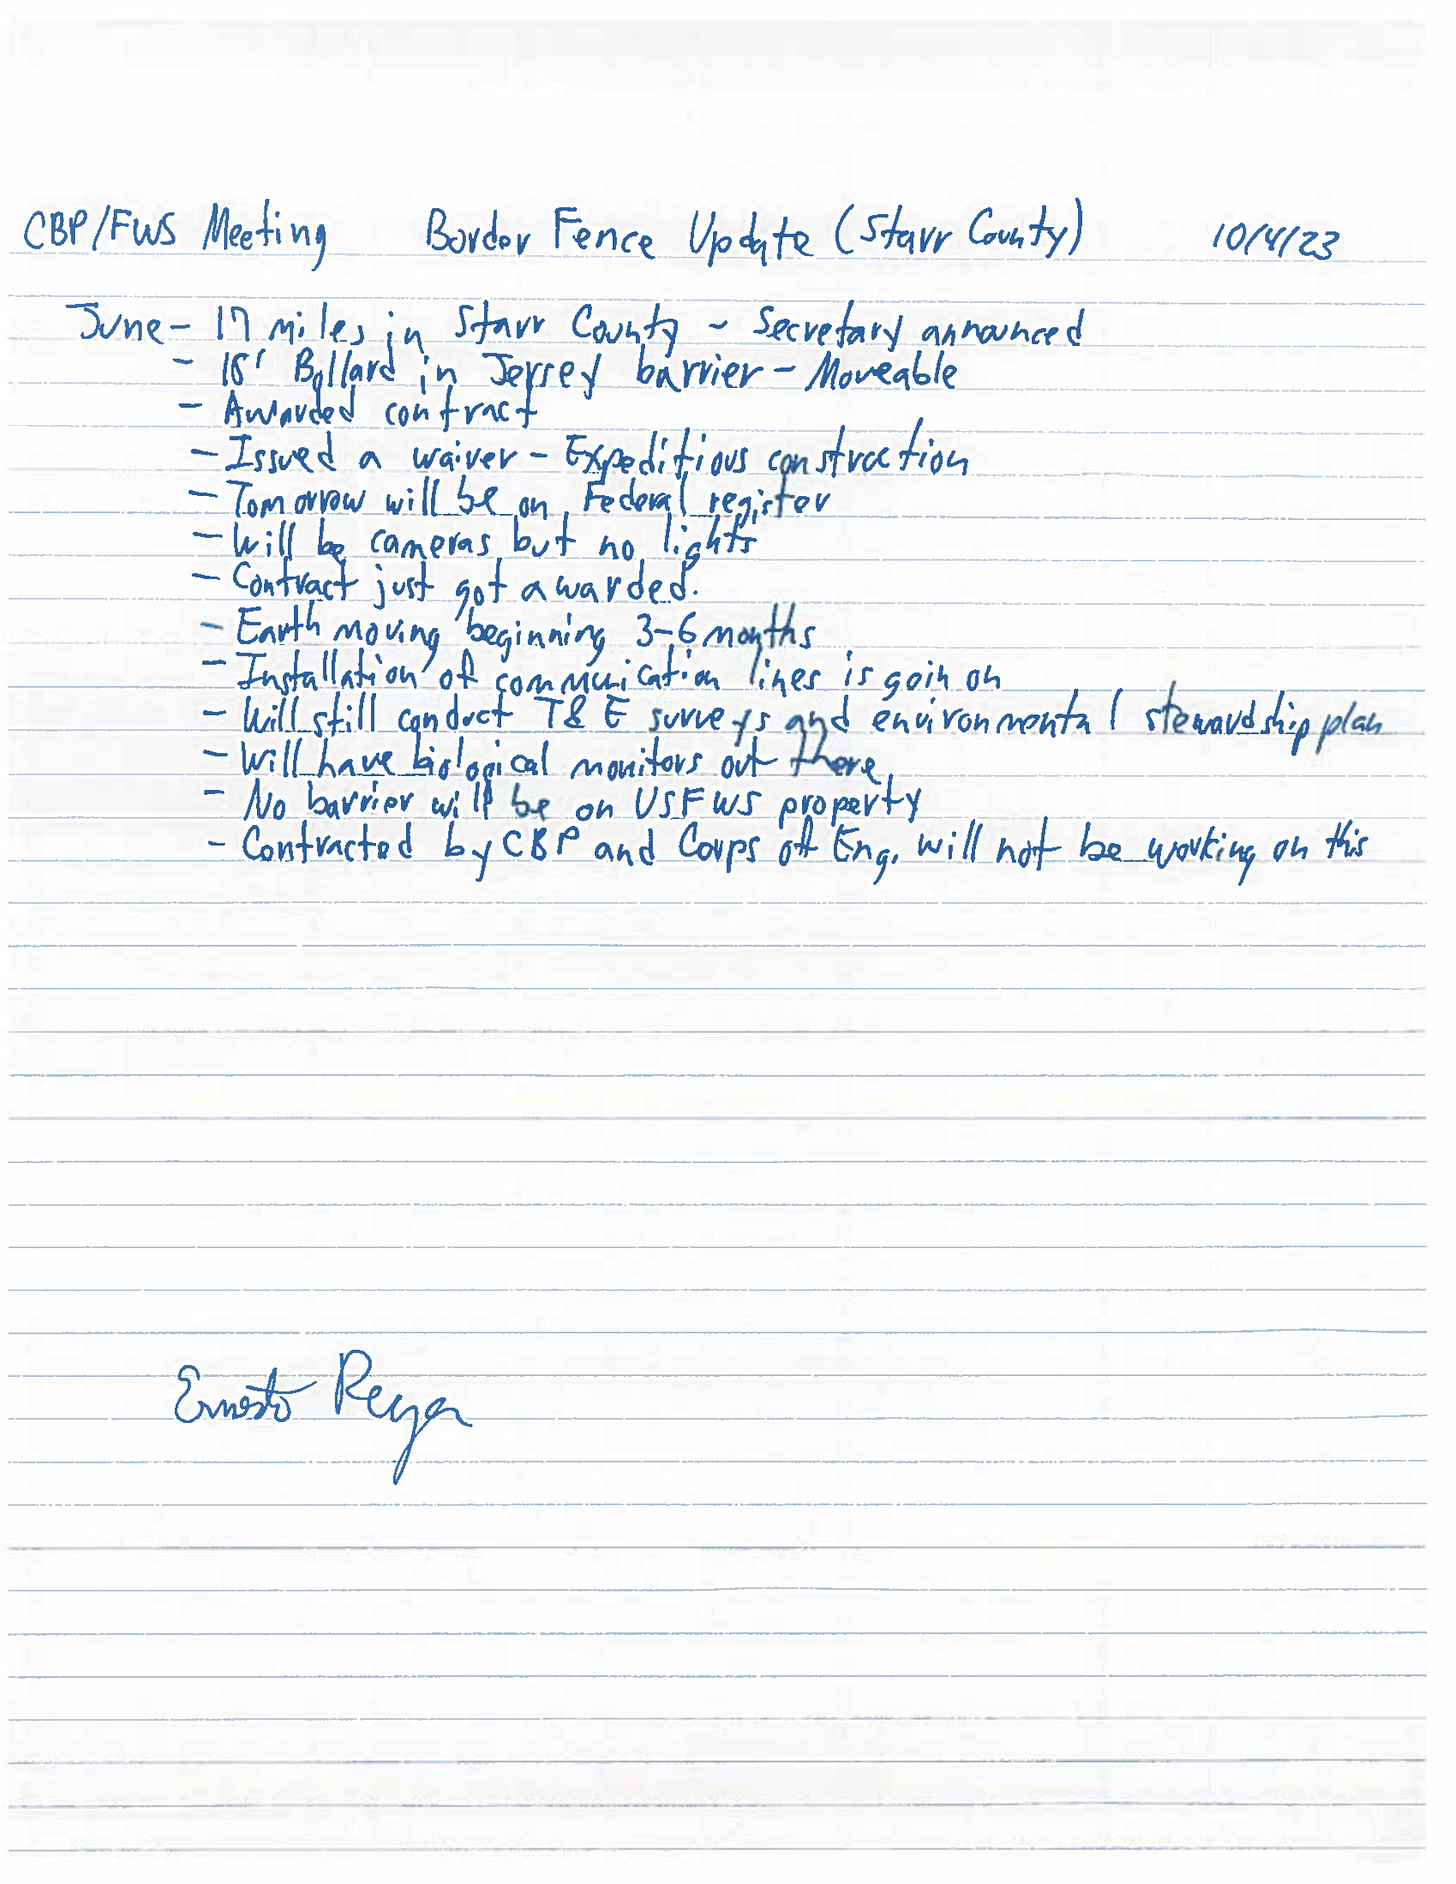 CBP/FWS Meeting Border Fence Update (Starr County) 10/4/23
June - 17 miles in Starr County - Secretary announced
- 18' Bollard in Jersey barrier - Moveable
- Awarded contract
- Issued a waiver - Expeditious construction
- Tomorrow will be on Federal register
- Will be cameras but no lights
- Contract just got awarded.
- Earth moving beginning 3-6 months
- Installation of communication lines is goin on
- Will still conduct T&E surveys and environmental stewardship plan
- Will have biological monitors out there.
- No barrier will be on USFWS property
- Contracted by CBP and Corps of Eng. will not be working on this
Ernesto Reyes